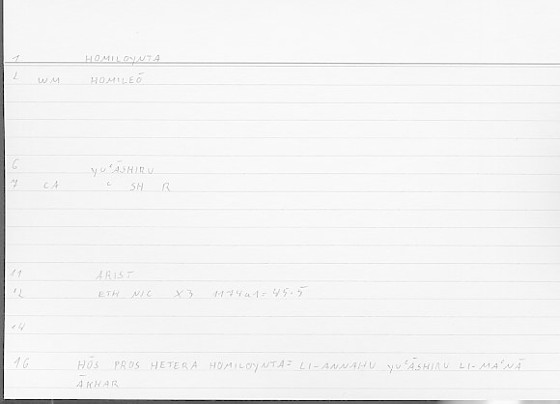 1 HOMILOYNTA
2 WM HOMILEŌ
6 yuʿĀSHIRU
7 CA ʿ SH R
11 ARIST
12 ETH NIC X3 1174a1=45.5
14
16 HŌS PROS HETERA HOMILOYNTA= LI-ANNAHU yuʿĀSHIRU LI-MAʿNĀ
ĀKHAR